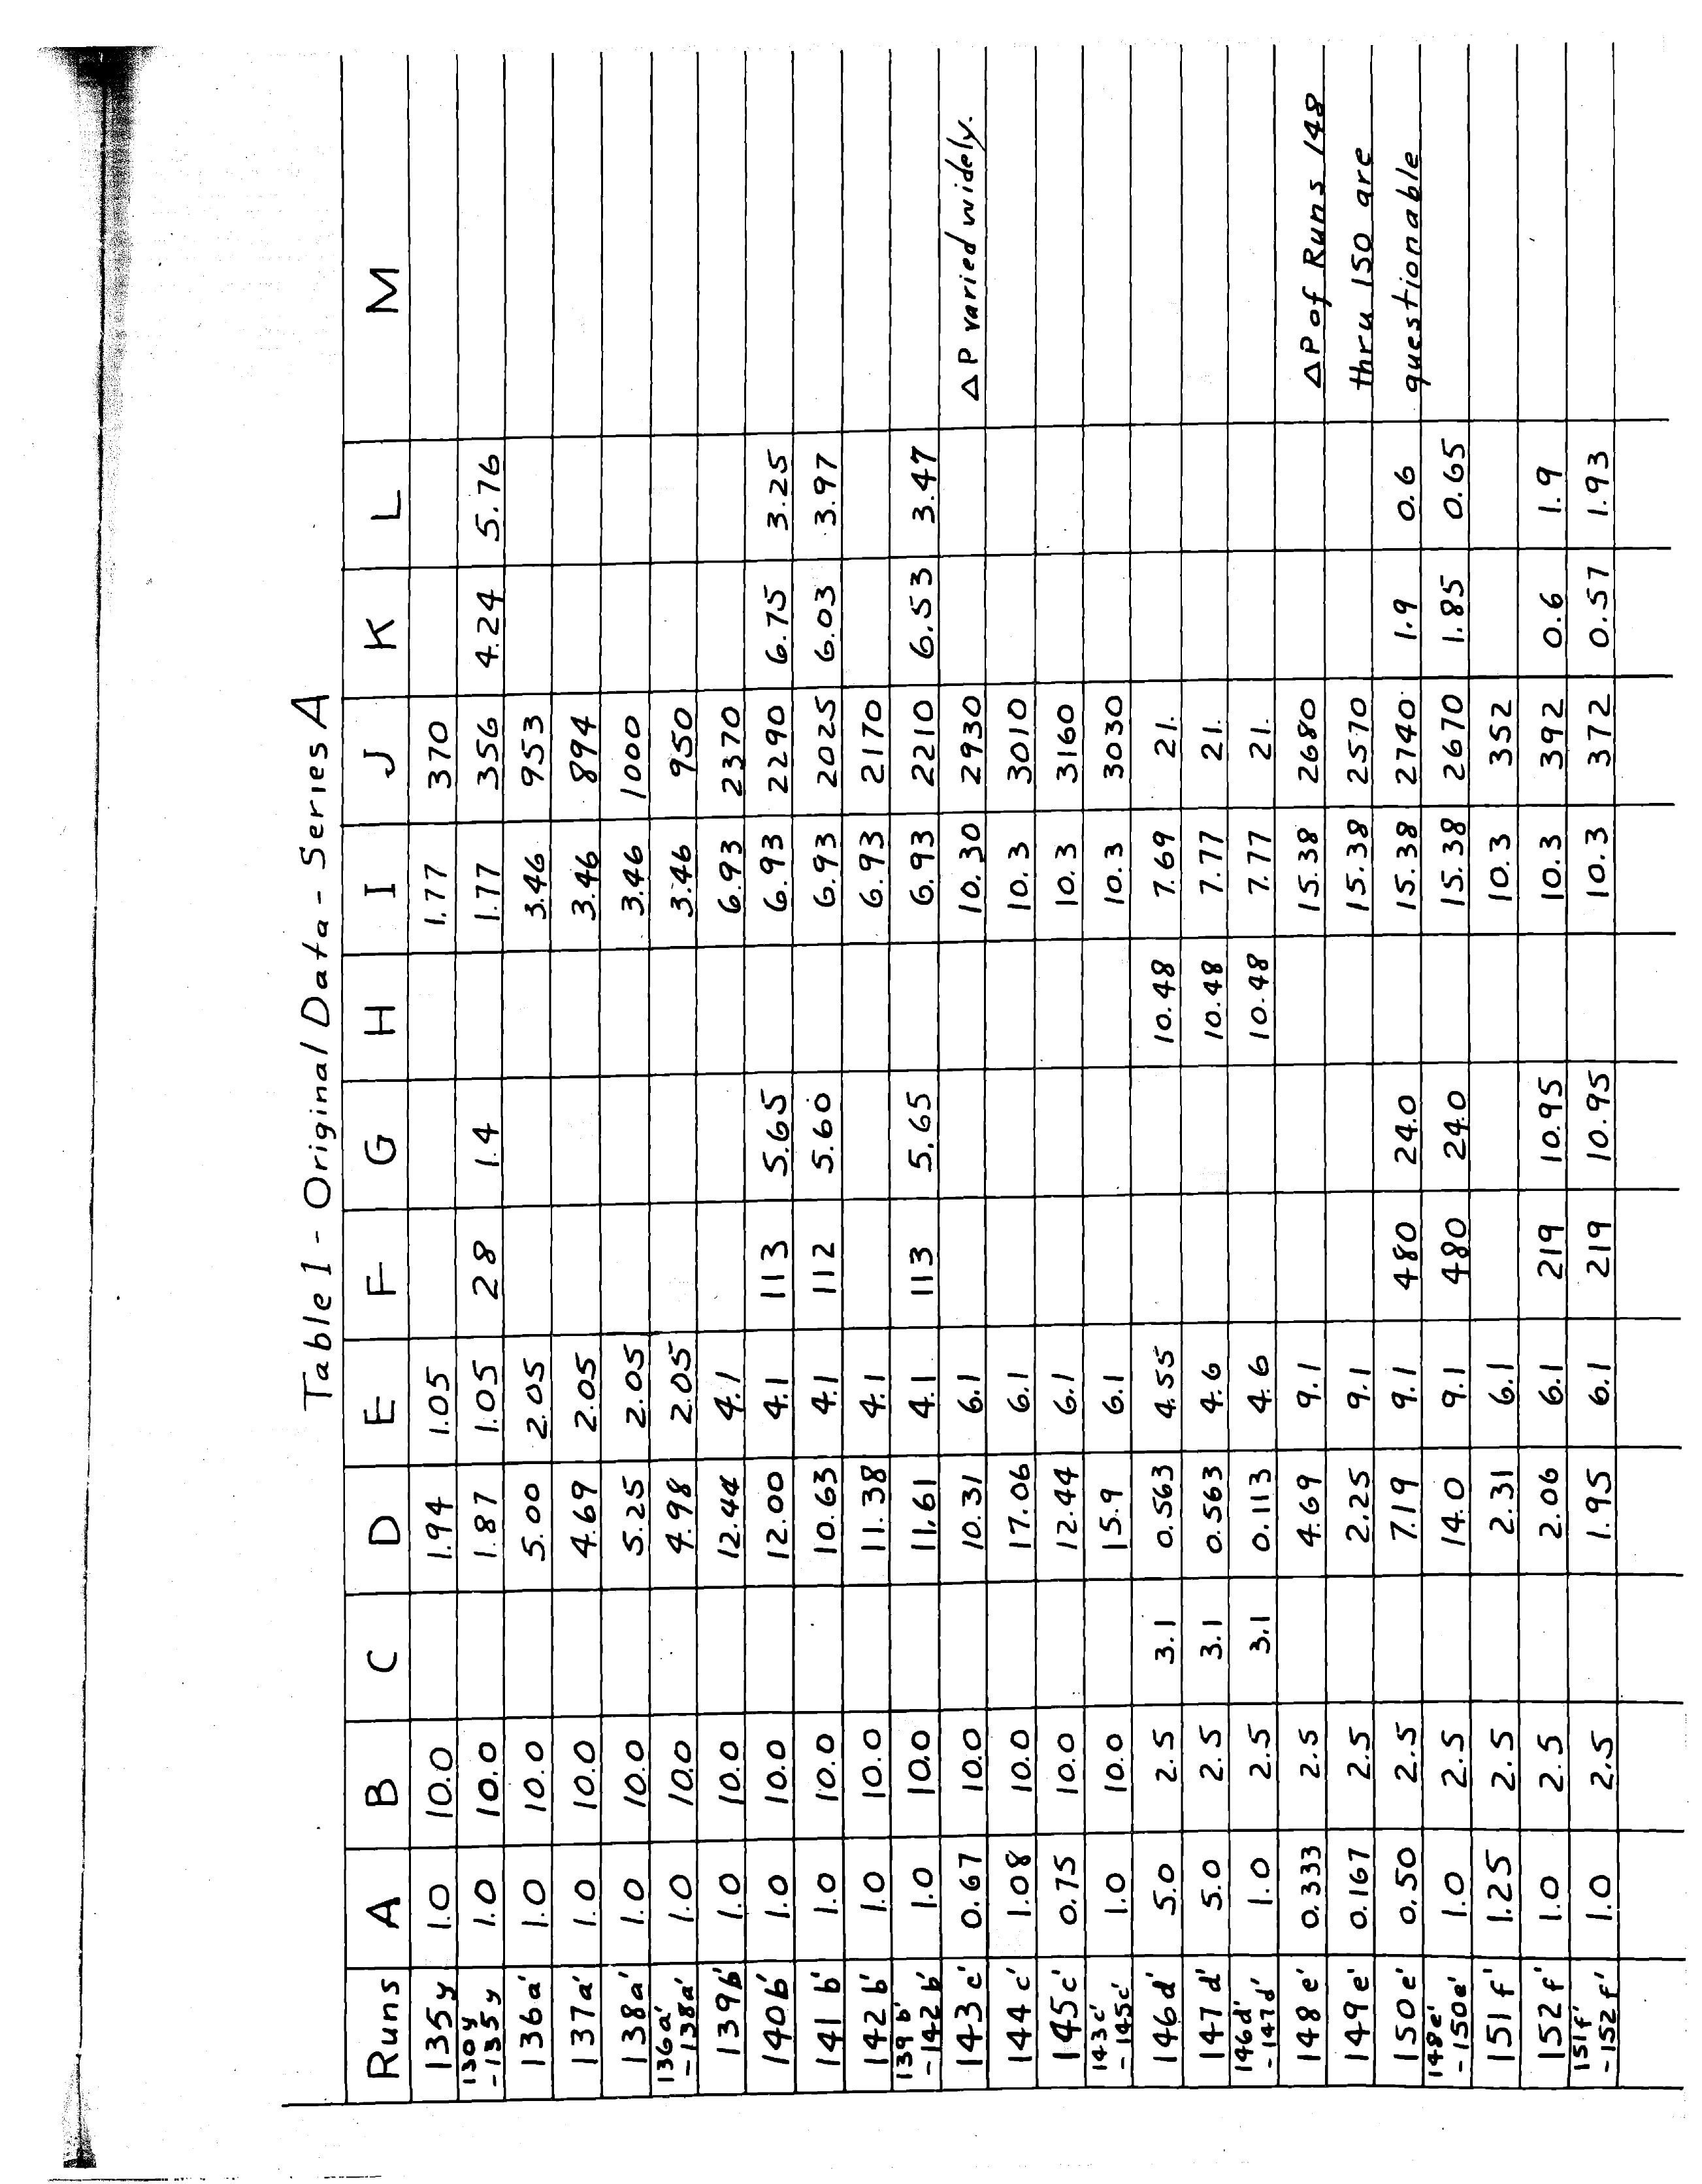 Table 1 - Original Data - Series A
Runs A B C D E F G H I J K L M
135y 1.0 10.0 1.94 1.05 1.77 370
130y -135y 1.0 10.0 1.87 1.05 28 1.4 1.77 356 4.24 5.76
136a' 1.0 10.0 5.00 2.05 3.46 953
137a' 1.0 10.0 4.69 2.05 3.46 894
138a' 1.0 10.0 5.25 2.05 3.46 1000
136a' -138a' 1.0 10.0 4.98 2.05 3.46 950
139b' 1.0 10.0 12.44 4.1 6.93 2370
140b' 1.0 10.0 12.00 4.1 113 5.65 6.93 2290 6.75 3.25
141b' 1.0 10.0 10.63 4.1 112 5.60 6.93 2025 6.03 3.97
142b' 1.0 10.0 11.38 4.1 6.93 2170
139b' -142b' 1.0 10.0 11.61 4.1 113 5.65 6.93 2210 6.53 3.47
143c' 0.67 10.0 10.31 6.1 10.30 2930 ΔP varied widely.
144c' 1.08 10.0 17.06 6.1 10.3 3010
145c' 0.75 10.0 12.44 6.1 10.3 3160
143c' -145c' 1.0 10.0 15.9 6.1 10.3 3030
146d' 5.0 2.5 3.1 0.563 4.55 10.48 7.69 21.
147d' 5.0 2.5 3.1 0.563 4.6 10.48 7.77 21.
146d' -147d' 1.0 2.5 3.1 0.113 4.6 10.48 7.77 21.
148e' 0.333 2.5 4.69 9.1 15.38 2680 ΔP of Runs 148
149e' 0.167 2.5 2.25 9.1 15.38 2570 thru 150 are
150e' 0.50 2.5 7.19 9.1 480 24.0 15.38 2740 1.9 0.6 questionable
148e' -150e' 1.0 2.5 14.0 9.1 480 24.0 15.38 2670 1.85 0.65
151f' 1.25 2.5 2.31 6.1 10.3 352
152f' 1.0 2.5 2.06 6.1 219 10.95 10.3 392 0.6 1.9
151f' -152f' 1.0 2.5 1.95 6.1 219 10.95 10.3 372 0.57 1.93